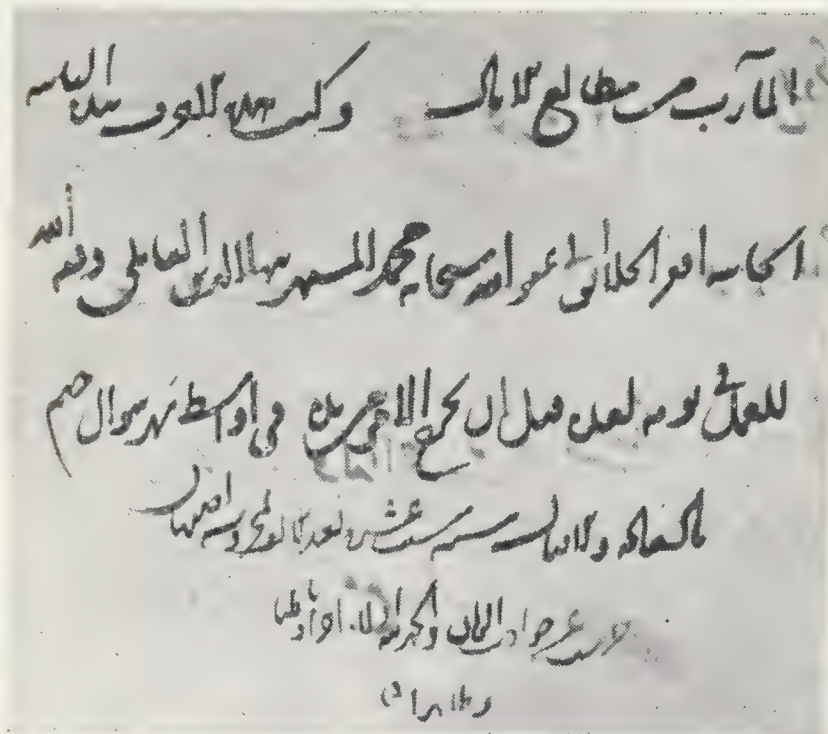 المآرب من مطالع الامال وكتب هذه الاحرف بيده
الجانيه افقر الخلائق الى عفو الله سبحانه محمد المشتهر ببهاء الدين العاملي وفقه الله
للعمل في يومه لغده قبل ان يخرج الامر من يده في اواسط شهر شوال ختم
بالسعادة والاقبال سنة ست عشر بعد الالف بمحروسة اصفهان
حرست عن حوادث الزمان والحمد لله اولا واخرا
وظاهرا